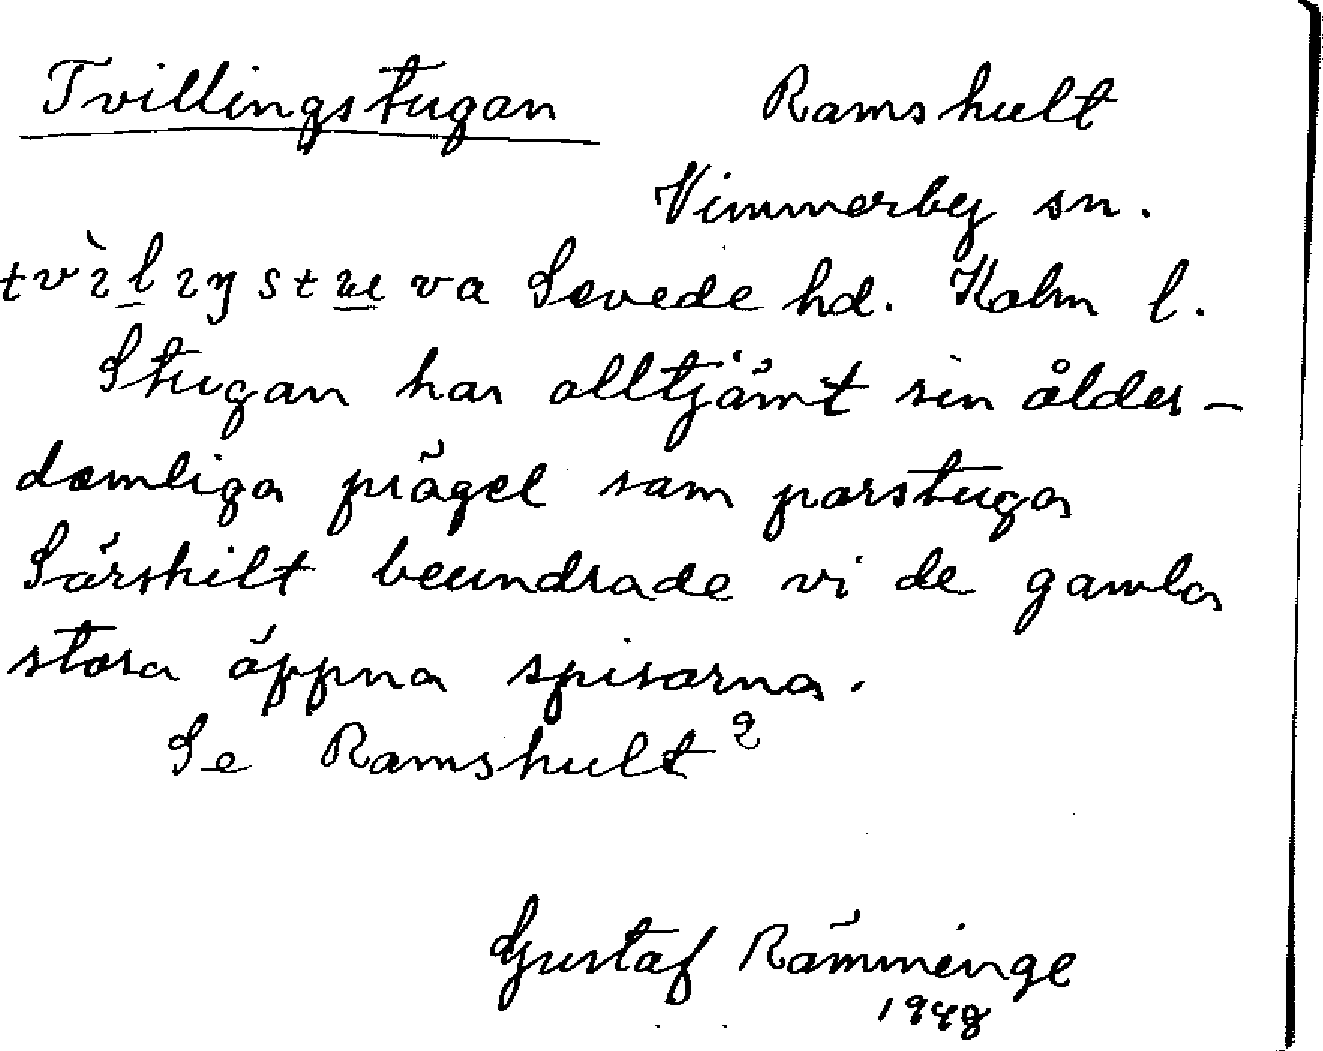 Tvillingstugan Ramshult
Vimmerby sn.
Sevede hd. Kalm l.
Stugan har alltjämt sin ålder-
domliga prägel som parstuga
Särskilt beundrade vi de gamla
stora öppna spisarna.
Se Ramshult 2
Gustaf Rämminge
1948